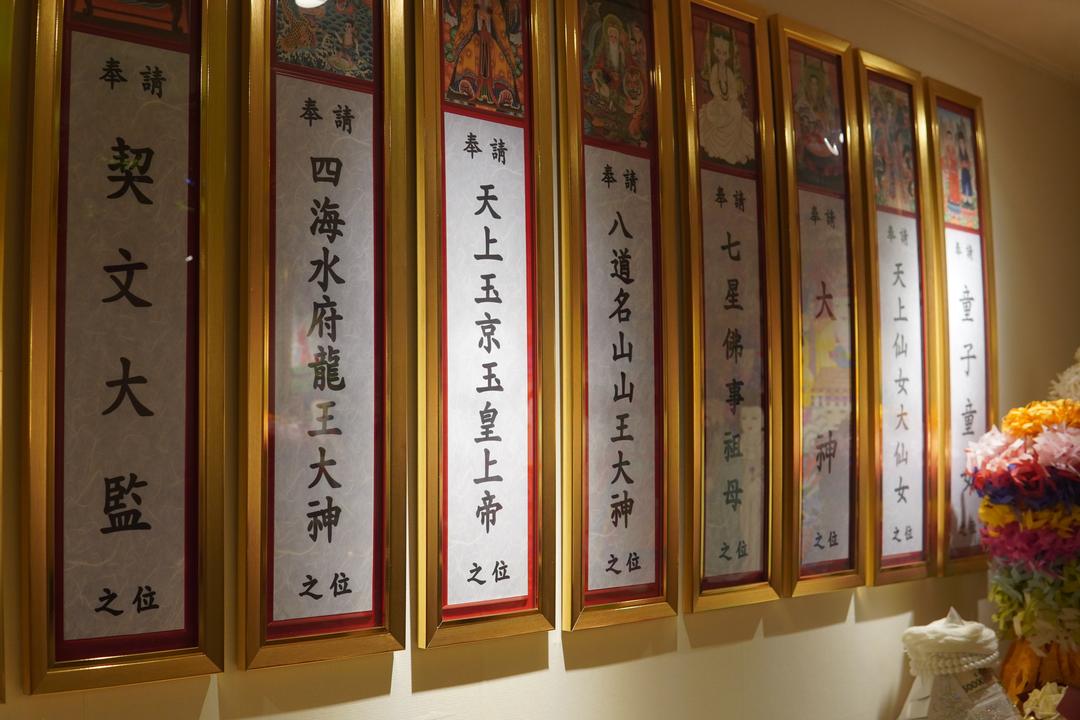 奉請
契文大監
之位
奉請
四海水府龍王大神
之位
奉請
天上玉京玉皇上帝
之位
奉請
八道名山山王大神
之位
奉請
七星佛事祖母
之位
奉請
大神
之位
奉請
天上仙女大仙女
之位
奉請
童子童